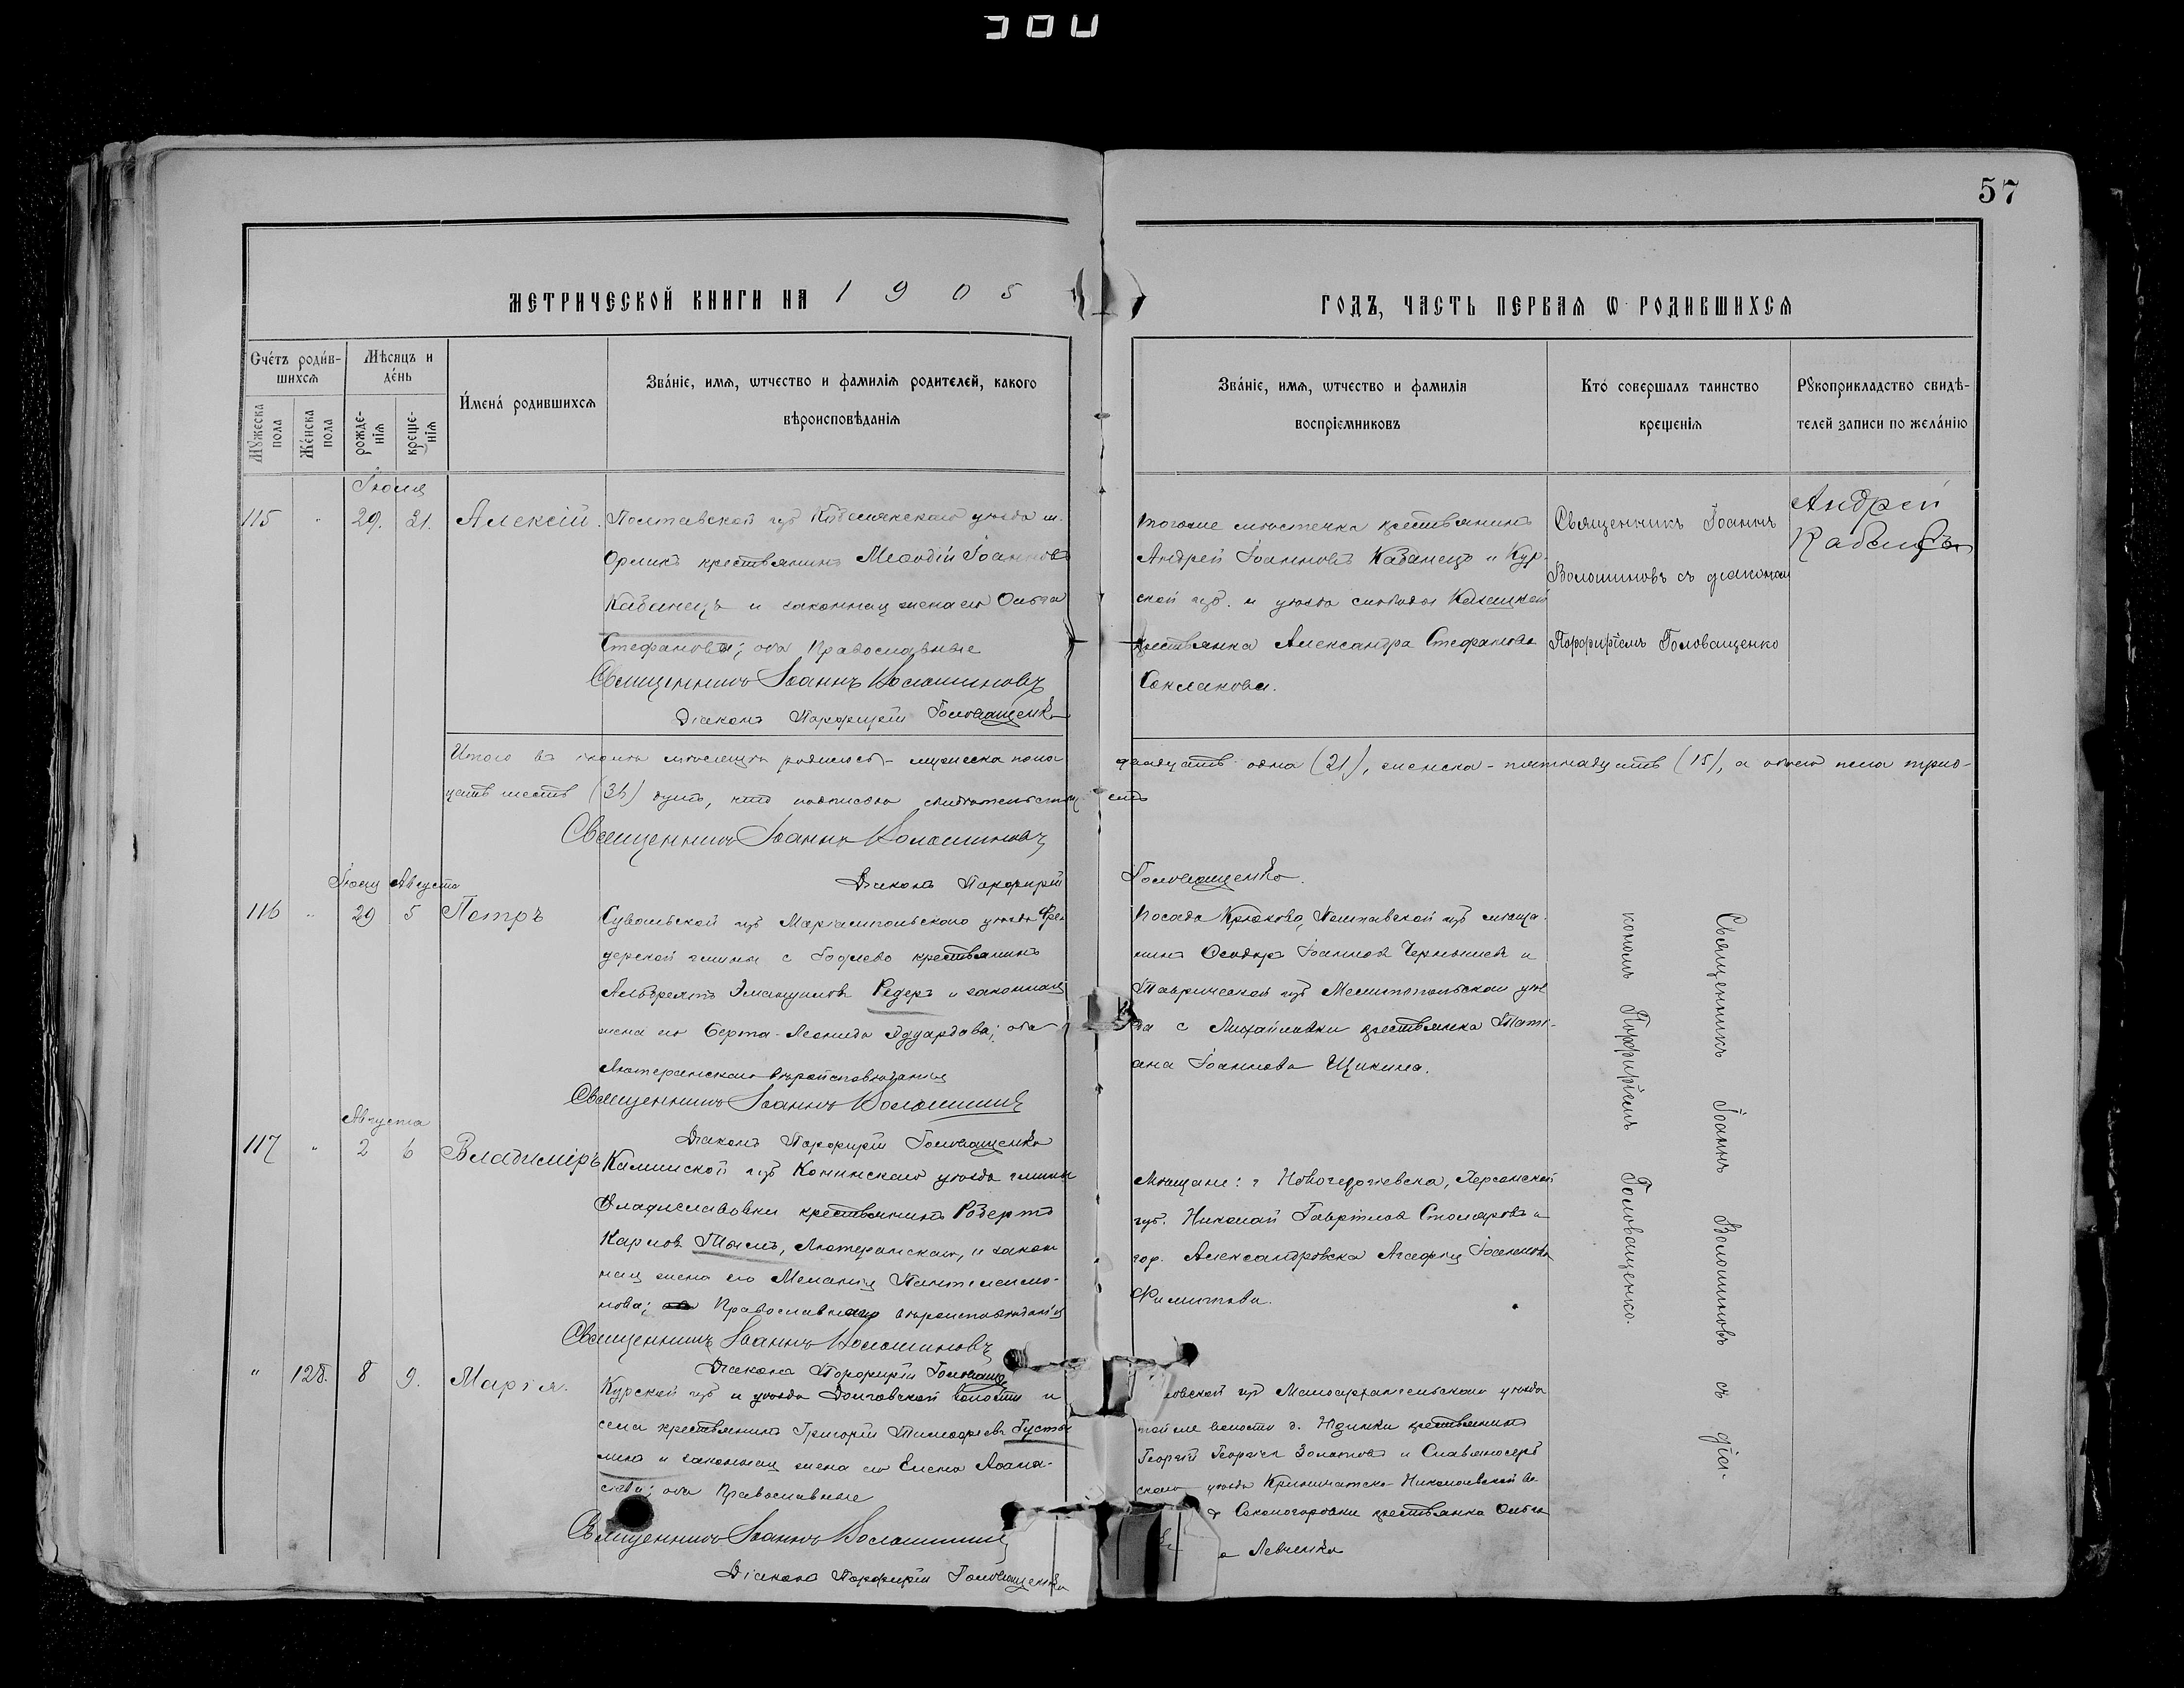 57
МЕТРИЧЕСКОЙ КНИГИ НА 1905
ГОДЪ, ЧАСТЬ ПЕРВАЯ Ѡ РОДИВШИХСЯ
Счетъ родив-
шихся
Мѣсяцъ и
день
Мужеска
пола
Женска
пола
рожде-
нія
креще-
нія
Имена родившихся
Званіе, имя, ѡтчество и фамилія родителей, какого
вѣроисповѣданія
Званіе, имя, ѡтчество и фамилія
воспріемниковъ
Кто совершалъ таинство
крещенія
Рукоприкладство свидѣ-
телей записи по желанію
Іюля
115 " 29. 31. Алексій.
Полтавской губ Кобелякскаго уѣзда м.
Орликъ крестьянинъ Меѳодій Іоанновъ
Кабанецъ и законная жена его Ольга
Стефанова; оба Православные
Священникъ Іоаннъ Волошиновъ
Діаконъ Порфирій Головащенко
тогоже мѣстечка крестьянинъ
Андрей Іоанновъ Кабанецъ и Кур-
ской губ. и уѣзда слободы Казацкой
крестьянка Александра Стефанова
Соклакова.
Священникъ Іоаннъ
Волошиновъ съ діакономъ
Порфиріемъ Головащенко
Андрей
Кабанецъ
Итого въ іюлѣ мѣсяцѣ родилось - мужеска пола
двадцать одна (21), женска - пятнадцать (15), а обоего пола трид-
цать шесть (36) душъ, что подписью свидѣтельств
Священникъ Іоаннъ Волошиновъ
Діаконъ Порфирій Головащенко.
Іюля Августа
116 " 29 5 Петръ
Сувалкской губ Маріампольскаго уѣзда Фре
дерской гмины с
крестьянинъ
Эмануиловъ Редеръ и законная
жена его Берта-Леонида Эдуардова; оба
Лютеранскаго вѣроисповѣданія
Священникъ Іоаннъ Волошиновъ
Діаконъ Порфирій Головащенко
Посада Крюкова, Полтавской губ мѣща-
нинъ Ѳеодоръ Іоанновъ Чернышевъ и
Таврической губ Мелитопольскаго уѣз
да с Михайловки крестьянка Тати-
ана Іоаннова Щикина.
Священникъ Іоаннъ Волошиновъ съ діа-
кономъ Порфиріемъ Головащенко.
Августа
117 " 2 6 Владиміръ
Калишской губ Конинскаго уѣзда гмины
Владиславовки крестьянинъ Робертъ
Карловъ Тымъ, Лютеранскаго, и закон
ная жена его Меланія Пантелеимо-
нова; Православнаго вѣроисповѣданія
Священникъ Іоаннъ Волошиновъ
Діаконъ Порфирій Головаще
Мѣщане: г Новогеоргіевска, Херсонской
губ. Николай Гавріиловъ Столяровъ и
гор. Александровска Агафія
Филиппова.
" 128. 8 9. Марія.
Курской губ и уѣзда Долговской волости и
села крестьянинъ Григорій Тимофеевъ Густо
мясовъ и законная жена его Елена Аѳана-
сіева; оба Православные
Священникъ Іоаннъ Волошиновъ
Діаконъ Порфирій Головащенко
овской губ Малоархангельскаго уѣзда
той же волости д. Юдинки крестьянинъ
Георгій Георгіевъ Золотовъ и Славяносерб
скаго уѣзда Криничанско-Николаевской во
крестьянка Ольга
Левченко